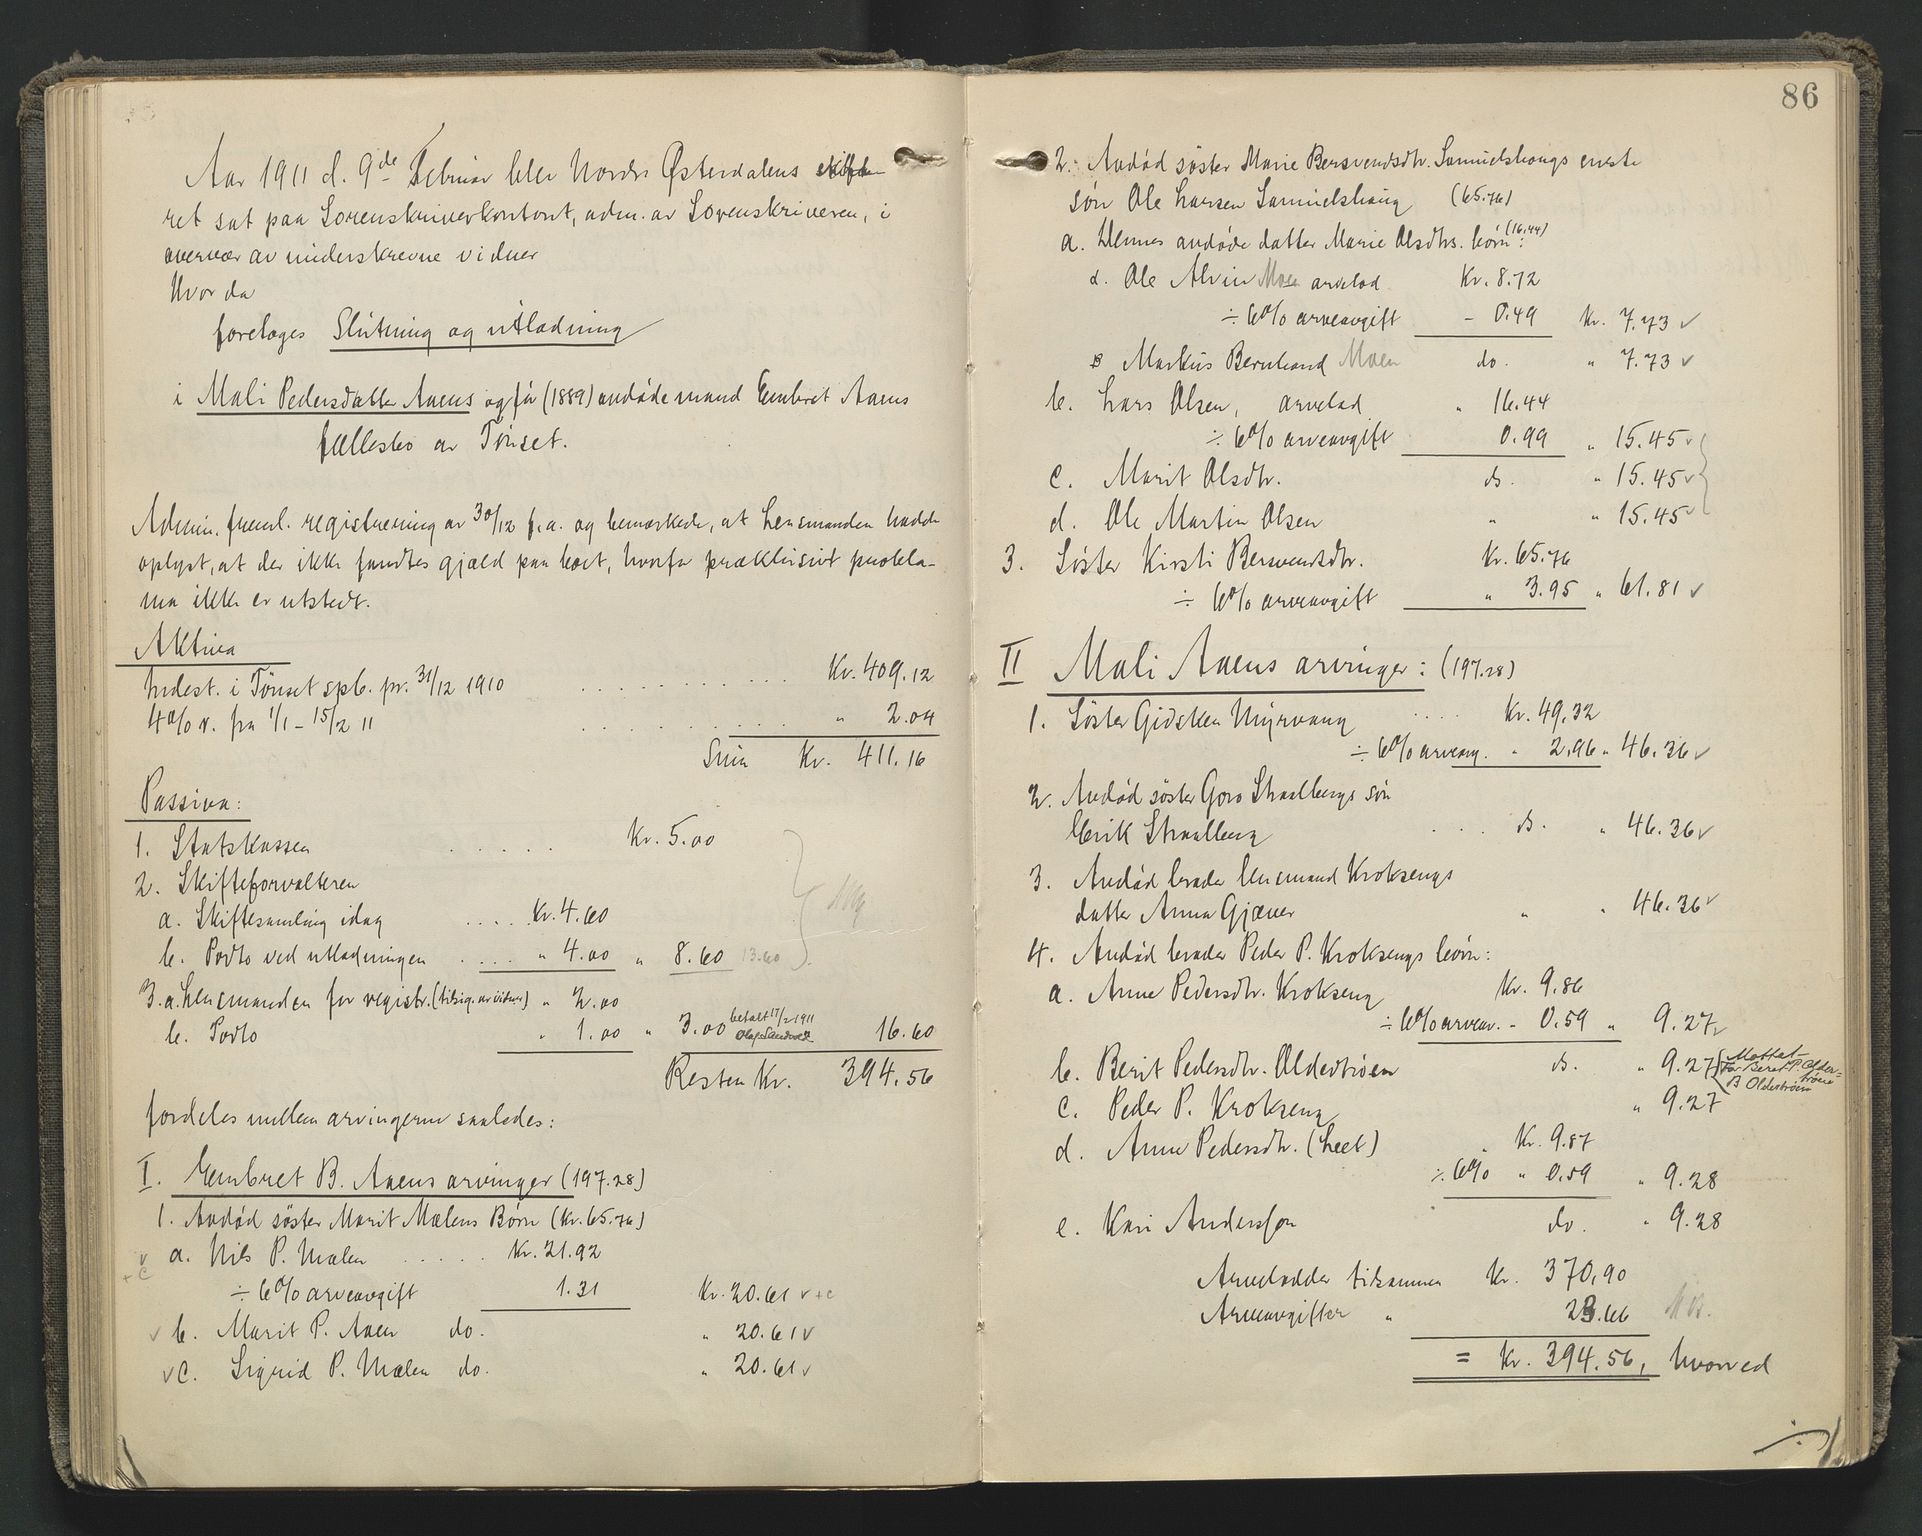 Aar 1911 d. 9de Februar blev Nordre Østerdalens skifte-
ret sat paa Sorenskriverkontoret, adm. av Sorenskriveren, i
overvær av underskrevne vidner
Hvorda
foretages Slutning og utlodning
i Mali Pedersdatter Aaens og før (1889) avdøde mand Embret Aaens
fællesbo av Tönset.
Admin. freml. registrering av 30/12 f.a. og bemerkede, at Lensmanden hadde
oplyst, at der ikke fandtes gjæld paa boet, hvorfor præklusivt prokla-
ma ikke er utstedt.
Aktiva
Indest. i Tönset spb. pr. 31/12 1910 . . . . . . . . . . Kr. 409.12
4% r. fra 1/1 - 15/2 11 . . . . . . . " 2.04
Sum Kr. 411.16
Passiva:
1. Statskassen . . . . . Kr. 5.00
2. Skifteforvalteren
a. Skiftesamling idag . . . . Kr. 4.60
b. Porto ved utlodningen . . . . " 4.00 " 8.60 13.60
3. a. Lensmanden for registr. (tilsig. av vidner) " 2.00
b. Porto " 1.00 " 3.00 betalt 17/2 1911 16.60
Resten Kr. 394.56
fordeles mellem arvingerne saaledes:
I. Embret B. Aaens arvinger (197.28)
1. Avdød søster Marit Mælens Børn (Kr. 65.76)
v a. Nils P. Mælen . . . . . Kr. 21.92
+c
÷ 6% arveavgift 1.31 Kr. 20.61 v +c
v b. Marit P. Aaen do. " 20.61 v
v c. Sigrid P. Mælen do. " 20.61 v
86
2. Avdød søster Marie Bersvendsdtr. Samuelshaugs eneste
søn Ole Larsen Samuelshaug (65.76)
a. Hennes avdøde datter Marie Olsdtrs. børn: (16.44)
α. Ole Alvin Moen arvelod Kr. 8.72
÷ 6% arveavgift - 0.49 Kr. 7.73 v
β Markus Bernhard Moen do. " 7.73 v
b. Lars Olsen, arvelod " 16.44
÷ 6% arveavgift 0.99 " 15.45 v
c. Marit Olsdtr. do. " 15.45 v
d. Ole Martin Olsen " " 15.45 v
3. Søster Kirsti Bersvendsdtr. Kr. 65.76
÷ 6% arveavgift " 3.95 " 61.81 v
II Mali Aaens arvinger: (197.28)
1. Søster Gidsken Myrvang . . . . Kr. 49,32
÷ 6% arveavg. " 2,96 " 46.36 v
2. Avdød søster Goro Straalbergs søn
Erik Straalberg . . . . do. " 46.36 v
3. Avdød broder lensmand Kroksengs
datter Anna Gjæver " " 46.36 v
4. Avdød broder Peder P. Kroksengs børn:
a. Anne Pedersdtr. Krokseng Kr. 9.86
÷ 6% arveav. - 0.59 " 9.27 v
b. Berit Pedersdtr. Oldertrøen do. " 9.27 Mottat
For Beret P. Older-
trøen
B Oldertrøen
c. Peder P. Krokseng " 9.27
d. Anne Pedersdtr. (Leet) " Kr. 9.87
÷ 6% " 0.59 " 9.28
e. Kari Anderssen do. " 9.28
Arvelodder tilsammen Kr. 370,90
Arveavgifter " 23.66
= Kr. 394.56, hvorved